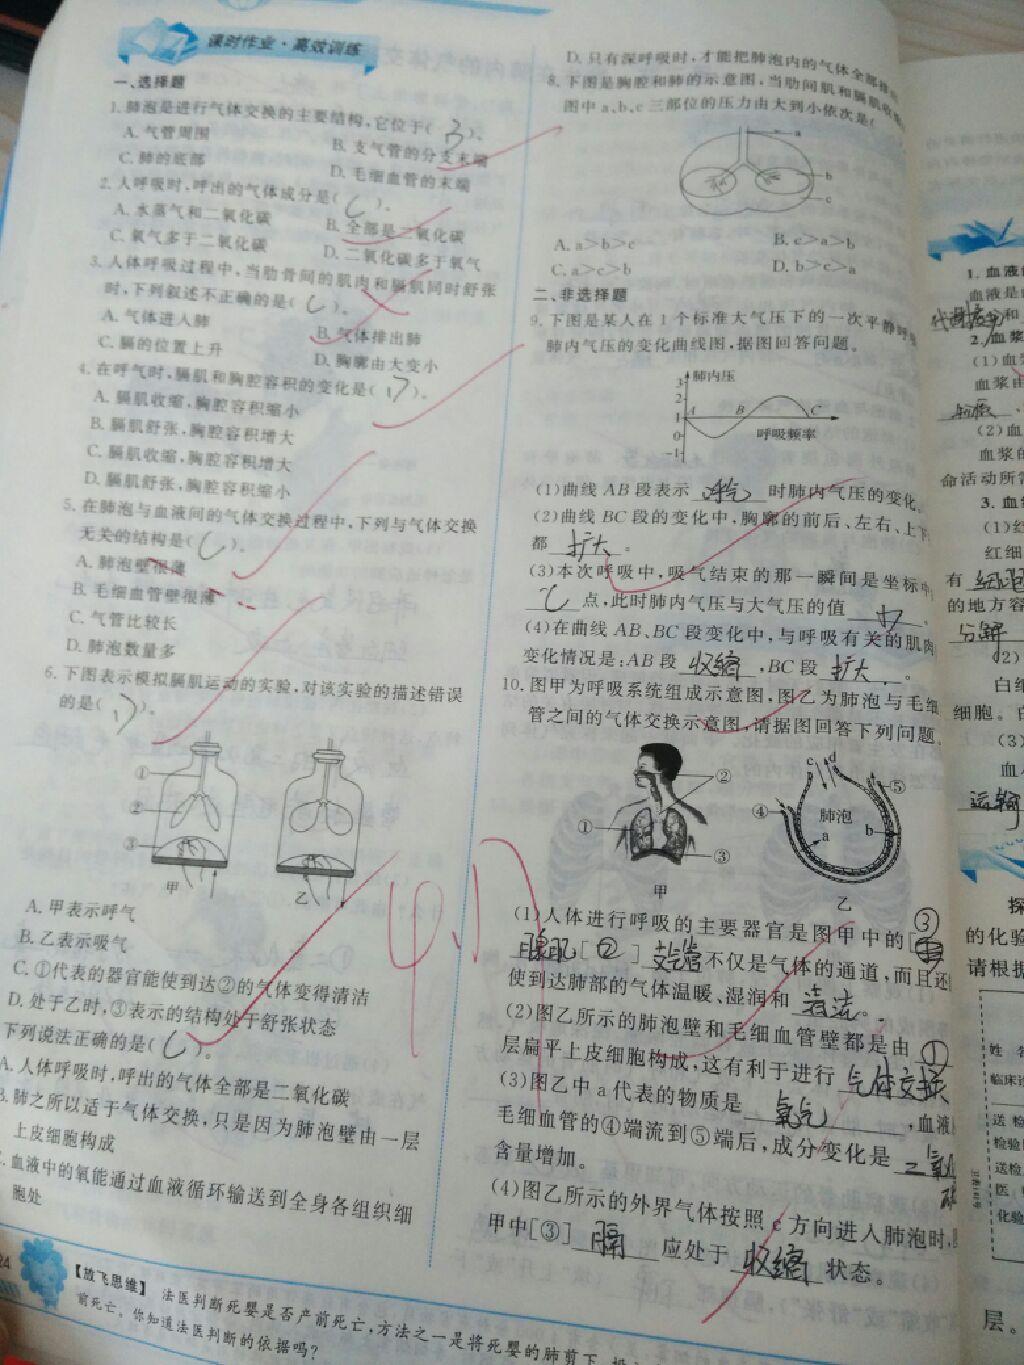 课时作业·高效训练
一、选择题
1.肺泡是进行气体交换的主要结构,它位于( B )。
A.气管周围
B.支气管的分支末端
C.肺的底部
D.毛细血管的末端
2.人呼吸时,呼出的气体成分是( C )。
A.水蒸气和二氧化碳
B.全部是二氧化碳
C.氧气多于二氧化碳
D.二氧化碳多于氧气
3.人体呼吸过程中,当肋骨间的肌肉和膈肌同时舒张
时,下列叙述不正确的是( C )。
A.气体进人肺
B.气体排出肺
C.膈的位置上升
D.胸廓由大变小
4.在呼气时,膈肌和胸腔容积的变化是( D )。
A.膈肌收缩,胸腔容积缩小
B.膈肌舒张,胸腔容积增大
C.膈肌收缩,胸腔容积增大
D.膈肌舒张,胸腔容积缩小
5.在肺泡与血液间的气体交换过程中,下列与气体交换
无关的结构是( C )。
A.肺泡壁很薄
B.毛细血管壁很薄
C.气管比较长
D.肺泡数量多
6.下图表示模拟膈肌运动的实验,对该实验的描述错误
的是( D )。
① ② ③
甲 乙
A.甲表示呼气
B.乙表示吸气
C.①代表的器官能使到达②的气体变得清洁
D.处于乙时,③表示的结构处于舒张状态
下列说法正确的是( C )。
A.人体呼吸时,呼出的气体全部是二氧化碳
B.肺之所以适于气体交换,只是因为肺泡壁由一层
上皮细胞构成
血液中的氧能通过血液循环输送到全身各组织细
胞处
24
【放飞思维】 法医判断死婴是否产前死亡,方法之一是将死婴的肺剪下
前死亡。你知道法医判断的依据吗?
D.只有深呼吸时,才能把肺泡内的气体全部
8.下图是胸腔和肺的示意图,当肋间肌和膈肌收
图中a、b、c三部位的压力由大到小依次是(
a
b
c
A.a>b>c
B.c>a>b
C.a>c>b
D.b>c>a
二、非选择题
9.下图是某人在1个标准大气压下的一次平静呼
肺内气压的变化曲线图,据图回答问题。
肺内压
3 2 1 0 -1
A B C
呼吸频率
(1)曲线AB段表示 吸气 时肺内气压的变化
(2)曲线BC段的变化中,胸廓的前后、左右、上下
都 扩大 。
(3)本次呼吸中,吸气结束的那一瞬间是坐标中
C 点,此时肺内气压与大气压的值
(4)在曲线AB、BC段变化中,与呼吸有关的肌肉
变化情况是:AB段 收缩 ,BC段 扩大 。
10.图甲为呼吸系统组成示意图,图乙为肺泡与毛细
管之间的气体交换示意图,请据图回答下列问题
① ② ③
甲
c d ④ ⑤
肺泡
a b
乙
(1)人体进行呼吸的主要器官是图甲中的[ ③
[ ② ] 支气管 不仅是气体的通道,而且还
使到达肺部的气体温暖、湿润和 清洁 。
(2)图乙所示的肺泡壁和毛细血管壁都是由 ①
层扁平上皮细胞构成,这有利于进行 气体交换
(3)图乙中a代表的物质是 氧气 ,血液
毛细血管的④端流到⑤端后,成分变化是 二氧化碳
含量增加。
(4)图乙所示的外界气体按照c方向进人肺泡时,
甲中[③] 膈 应处于 收缩 状态。
1.血液
血液是
2.血浆
(1)血
血浆由
(2)血
血浆的
命活动所
3.血
(1)红
红细
有 细胞
的地方容
分解
(2)
白细
细胞。白
(3)
血
运输
探
的化验
请根据
姓名
临床
送检
检验
送检
医
化验
层。